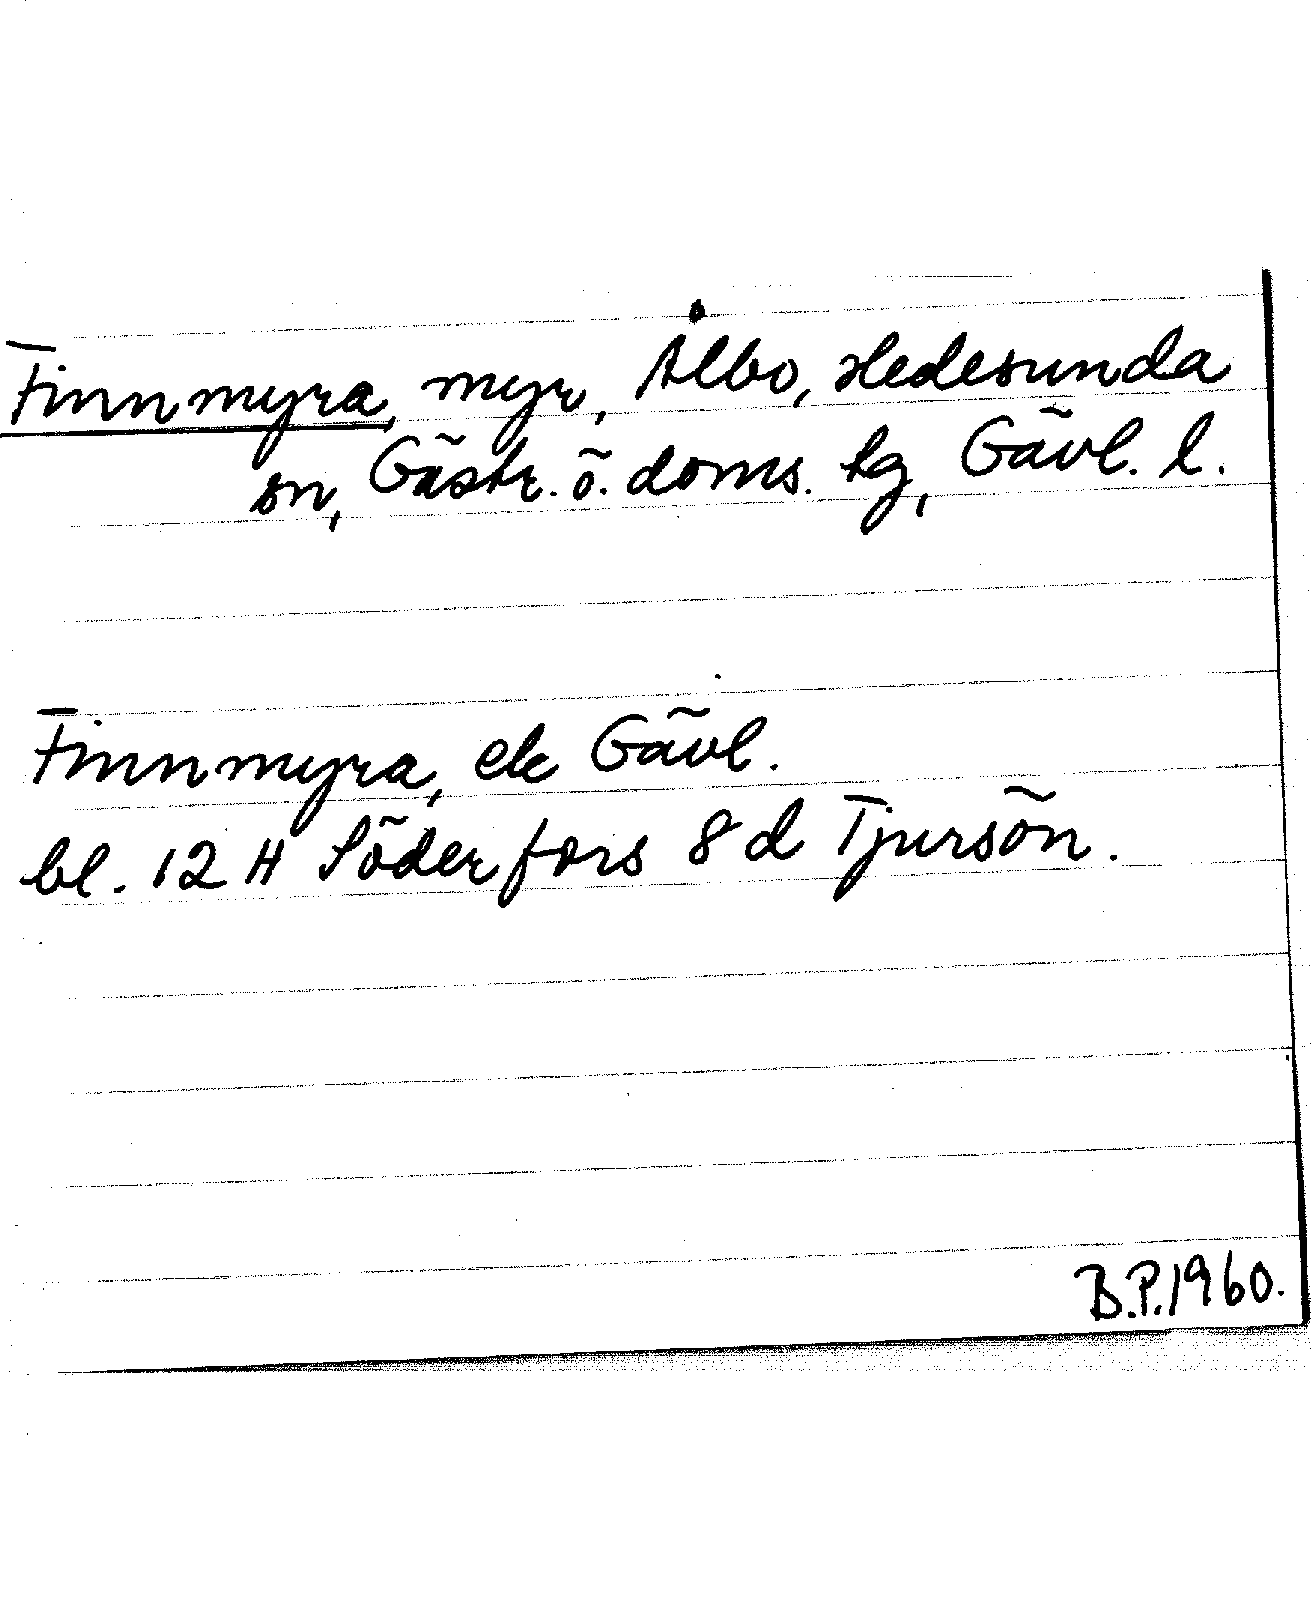 Finnmyra, myr, Ålbo, Hedesunda
sn, Gästr. ö. doms. tg, Gävl. l.
Finnmyra, ek Gävl.
bl. 12 H Söderfors 8 d Tjursön.
B.P. 1960.